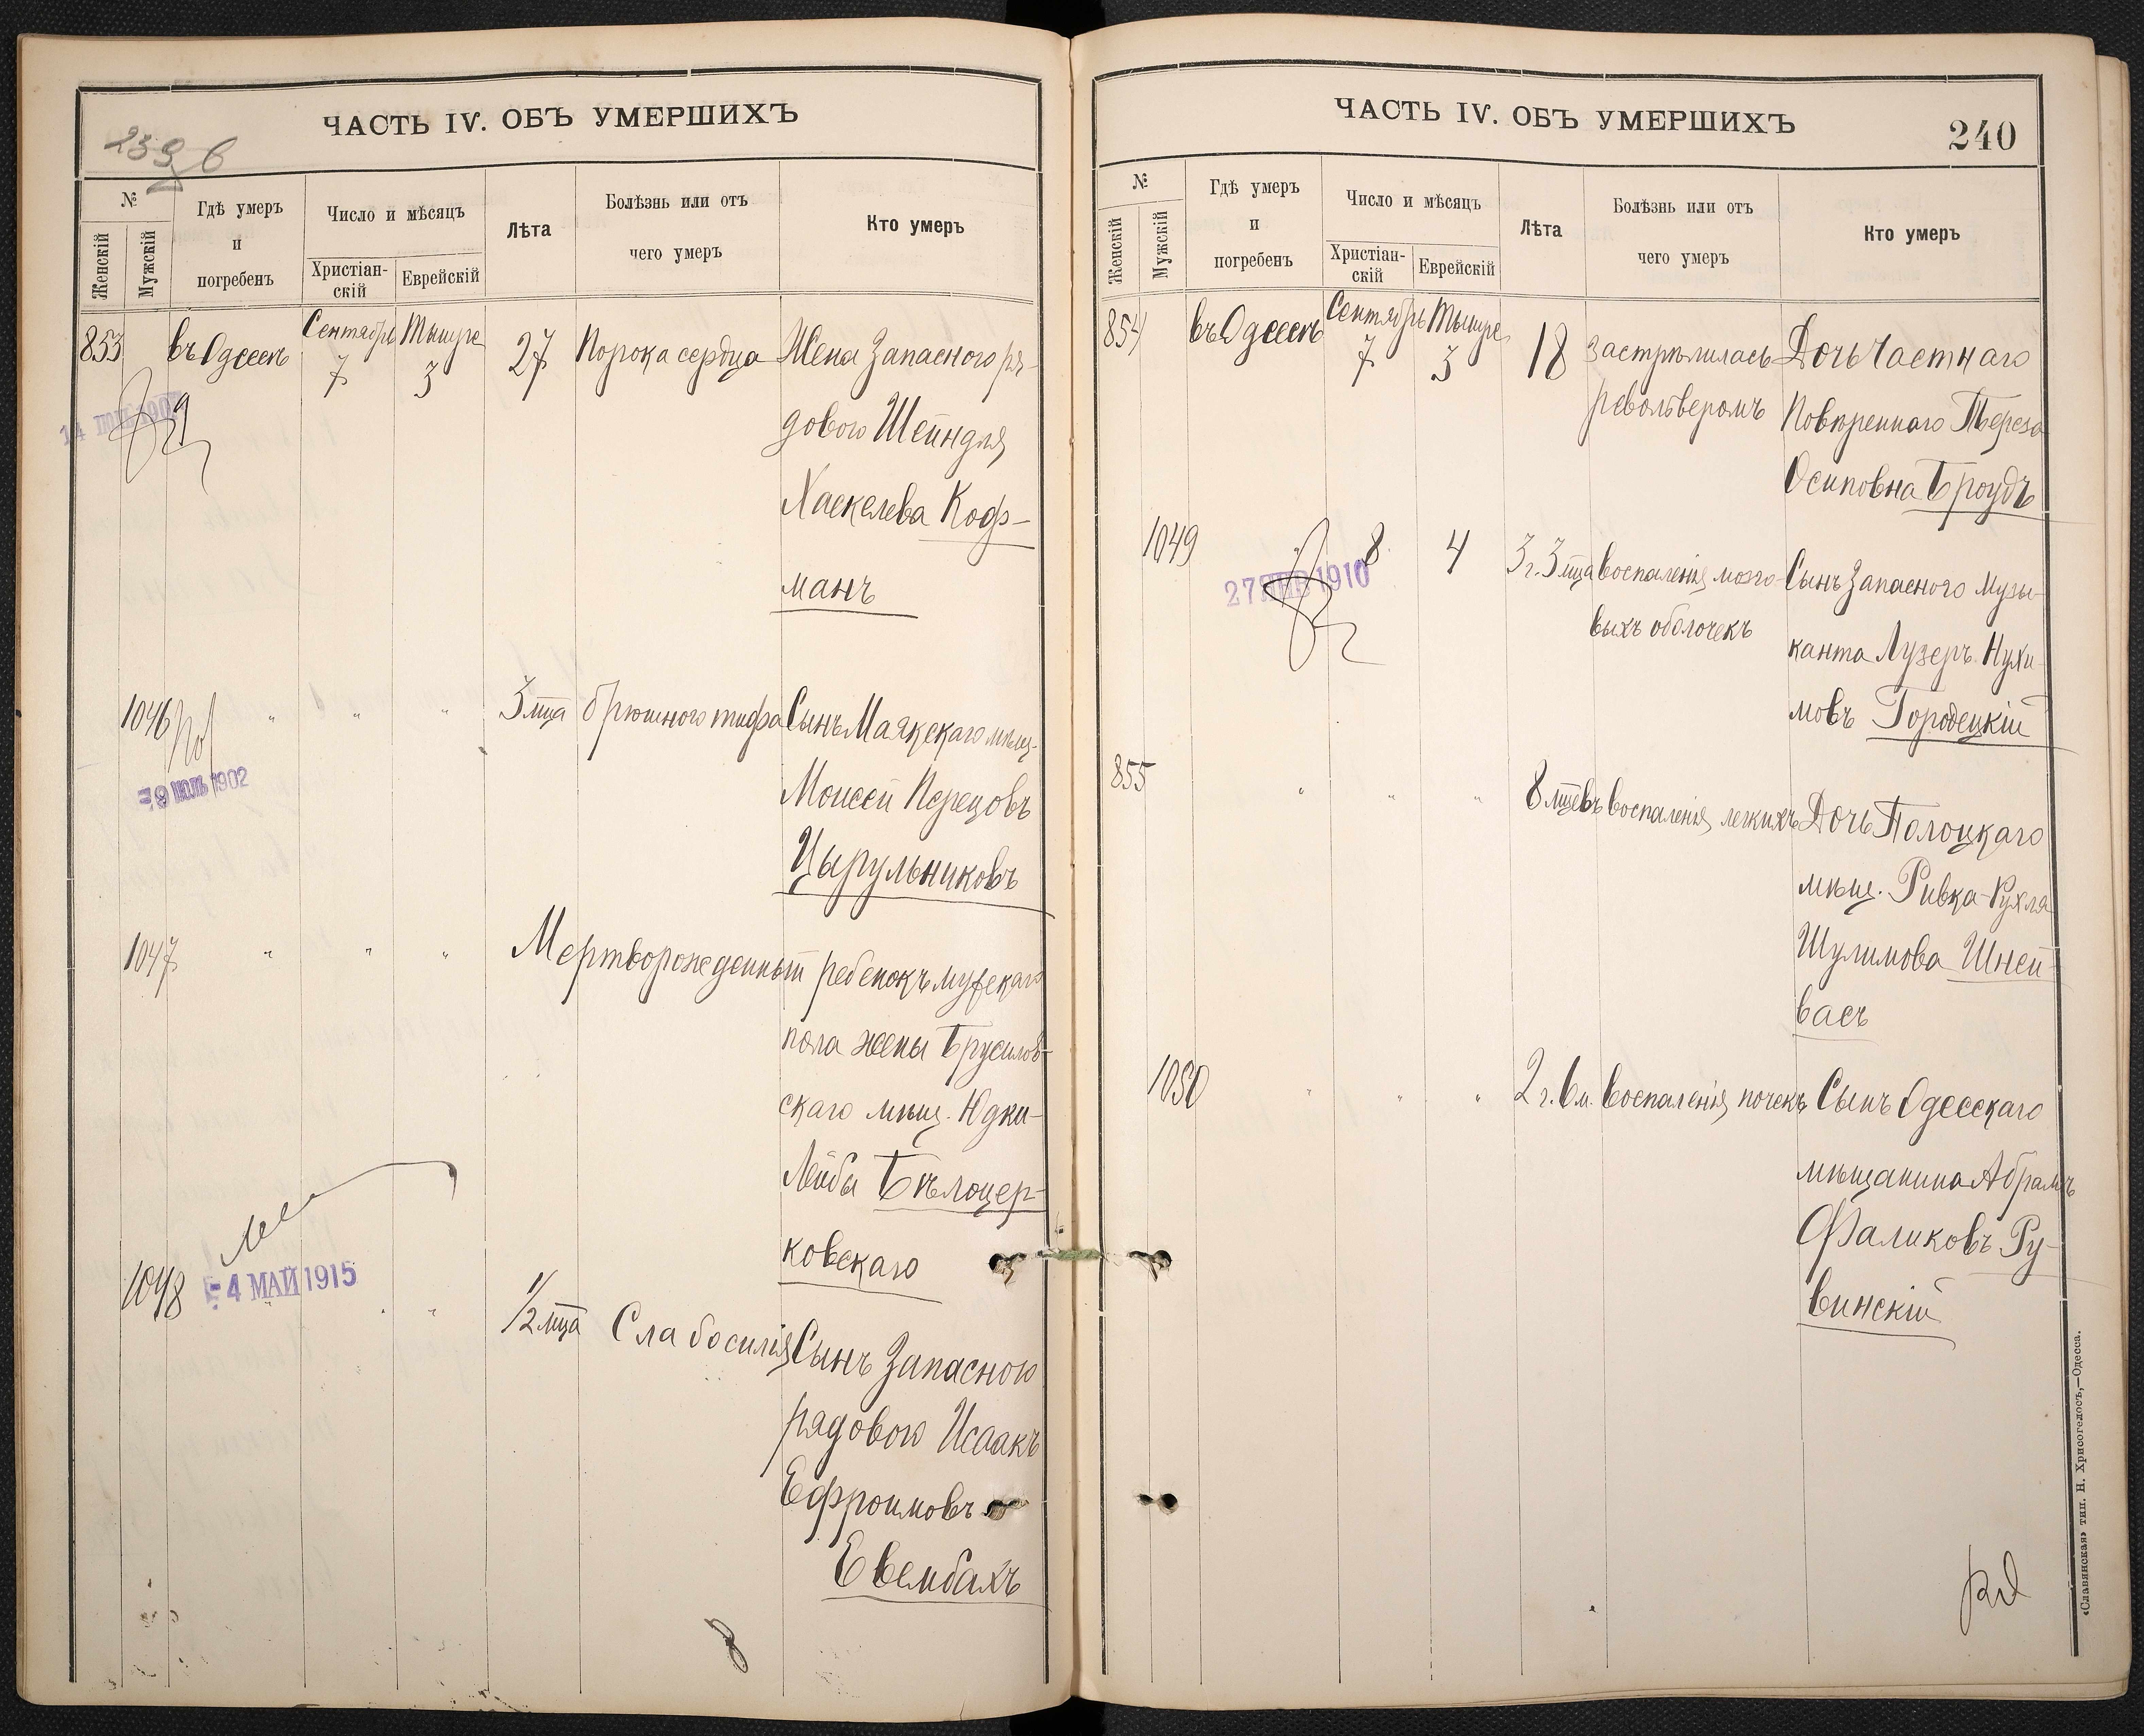 ЧАСТЬ IV. ОБЪ УМЕРШИХЪ
№
Женскій
Мужскій
Гдѣ умеръ
и
погребенъ
Число и мѣсяцъ
Христіан-
скій
Еврейскій
Лѣта
Болѣзнь или отъ
чего умеръ
Кто умеръ
853 въ Одессѣ Сентябрь 7 Тышре 3 27 Порока сердца Жена Запасного ря-
дового Шейндля
Хаскелева Коф-
манъ
1046 " " " 3 мца брюшного тифа Сынъ Маякскаго мѣщ.
1902
Моисей Перецовъ
Цырульниковъ
1047 " " " Мертворожденный ребенокъ мужскаго
пола жены Брусилов-
скаго мѣщ. Юдки-
Лейбы Бѣлоцер-
ковскаго
4 МАЙ 1915
1048 " " " 1/2 мца Слабосилія Сынъ Запасного
рядового Исаакъ
Ефроимовъ
ЧАСТЬ IV. ОБЪ УМЕРШИХЪ
240
№
Женскій
Мужскій
Гдѣ умеръ
и
погребенъ
Число и мѣсяцъ
Христіан-
скій
Еврейскій
Лѣта
Болѣзнь или отъ
чего умеръ
Кто умеръ
854 въ Одессѣ Сентябрь 7 Тышре 3 18 Застрѣлилась Дочь Частнаго
револьверомъ Повѣреннаго Тереза
Осиповна Броудъ
1049 " 8 4 3 г. 3 мца воспаленія мозго- Сынъ Запасного музы-
27 ЯНВ 1910
выхъ оболочекъ канта Лузеръ Нухи-
мовъ Городецкій
855 " " " 8 мцевъ воспаленія легкихъ Дочь Полоцкаго
мѣщ. Ривка-Рухля
Шулимова Шней-
васъ
1050 " " " 2 г. 6 м. воспаленія почекъ Сынъ Одесскаго
мѣщанина Абрамъ
Фаликовъ Ру-
винскій
«Славянская» тип. Н. Хрисогелосъ,—Одесса.